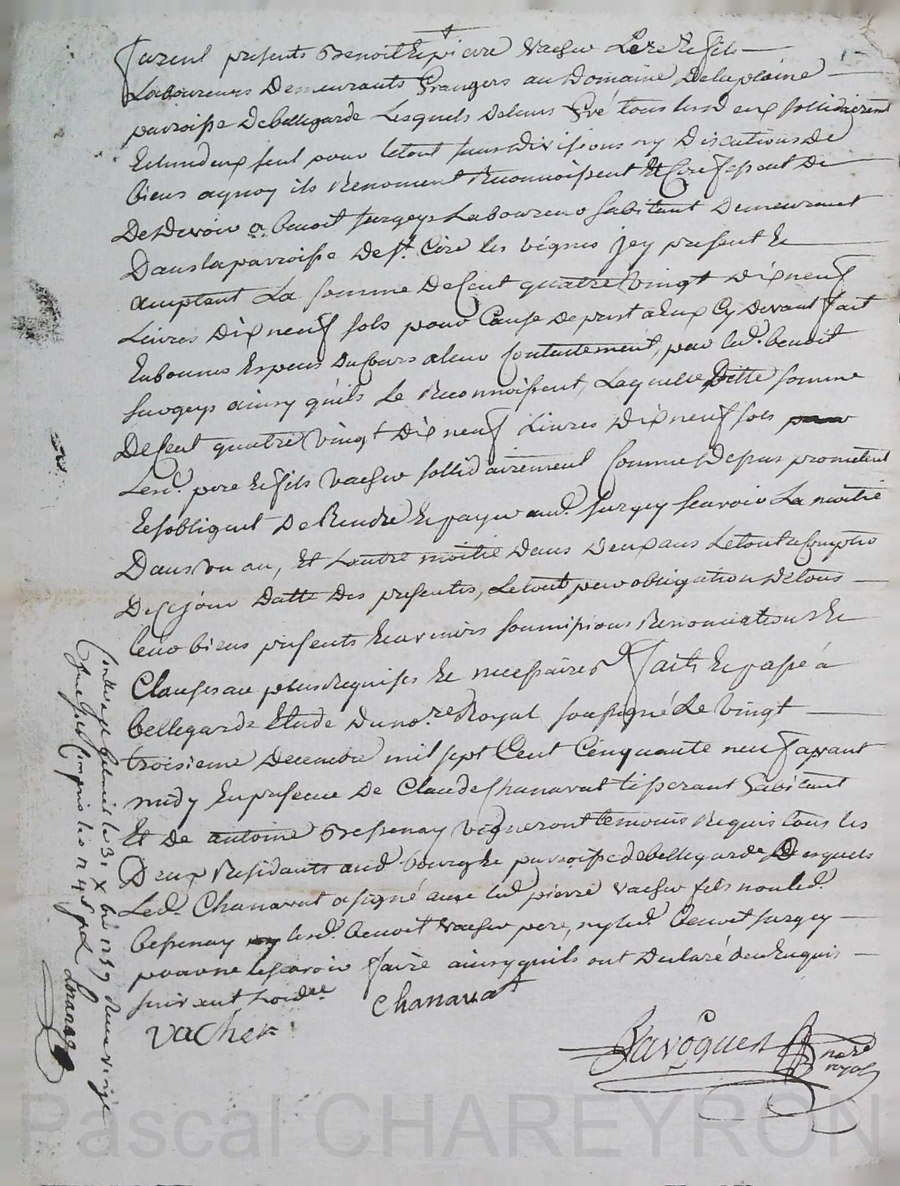 furent presents Benoit et pierre vacher pere et fils
Laboureurs Demeurants Grangers au Domaine Delaplaine
parroisse Debellegarde Lesquels Deleur gré tous lesd deux sollidairement
Et lundeux seul pour letout sans divisions ny Discutions de
biens aquoy ils Renoncent Reconnoissent Et Confessent de
Devoir a benoit surgeys Laboureur habitant Demeurant
Dans la parroisse De st. Cire les vignes icy present et
acceptant La somme De Cent quatre vingt Dix neuf
Livres Dix neuf sols pour Cause De prest a Eux Cy Devant fait
En bonnes Especes Ducours a leur Contentement, par led. benoit
surgeys ainsy quils Le Reconnoissent, Laquelle ditte somme
De Cent quatre vingt Dix neuf Livres Dix neuf sols
Lesd. pere et fils vacher sollidairement Comme Dessus promettent
Et sobligent De Rendre Et payer aud. surgey scavoir La moitié
Dans un an, Et Lautre moitié Dans Deux ans Le tout a Compter
De Ce jour Datte Des presentes, Le tout par obligation De tous
leur biens presents Et avenir soumissions Renonciations Et
Clauses au plus Requises Et necessaires fait Et passé à
bellegarde Etude Du no.re Royal soussigné Le vingt
troisieme Decembre mil sept Cent Cinquante neuf avant
midy En presence De Claude Chanavat tisserant habitant
Et De antoine Bessenay vigneront temoins Requis tous les
Deux Residants aud. bourg Et parroisse de bellegarde Desquels
Led. Chanavat a signé avec led. pierre vacher fils non led.
bessenay ny led. benoit vacher pere, ny led. benoit surgey
pour ne scavoir faire ainsy quils ont Declaré de ce Enquis
suivant Lordre
vacher Chanavat
notre
royal
Pascal CHAREYRON